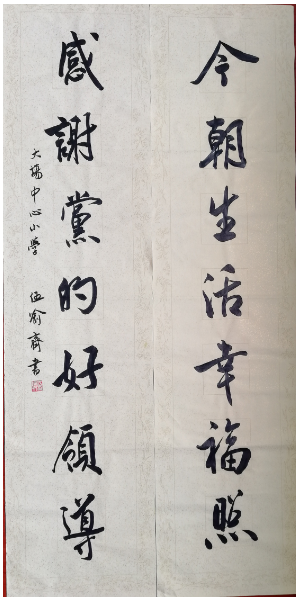 今朝生活幸福照
感謝黨的好領導
大楊中心小學 伍喻齊書